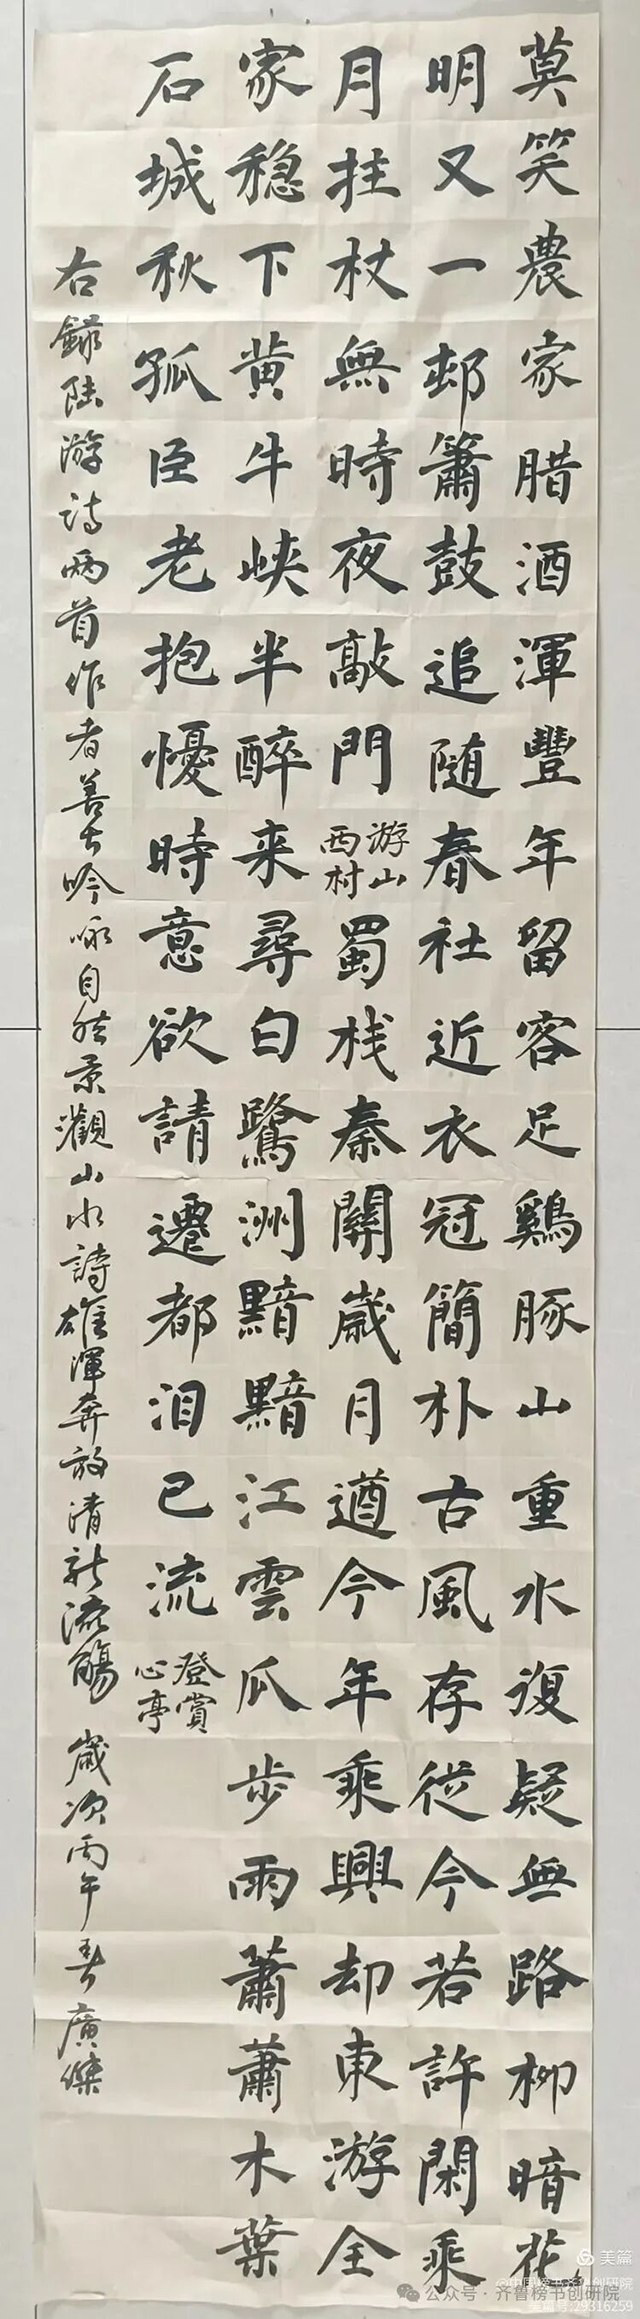 莫笑農家腊酒渾豐年留客足鷄豚山重水復疑無路柳暗花
明又一邨簫鼓追随春社近衣冠簡朴古風存從今若許閑乘
月拄杖無時夜敲門
游山
西村
蜀栈秦關歲月遒今年乘興却東游全
家稳下黄牛峡半醉来尋白鷺洲黯黯江雲瓜步雨蕭蕭木葉
石城秋孤臣老抱憂時意欲請遷都泪已流
登賞
心亭
右錄陆游诗两首作者善于吟咏自然景觀山水詩雄渾奔放清新流暢
歲次丙午春廣傑
美篇
公众号·齐鲁榜书创研院
美篇号:29316259